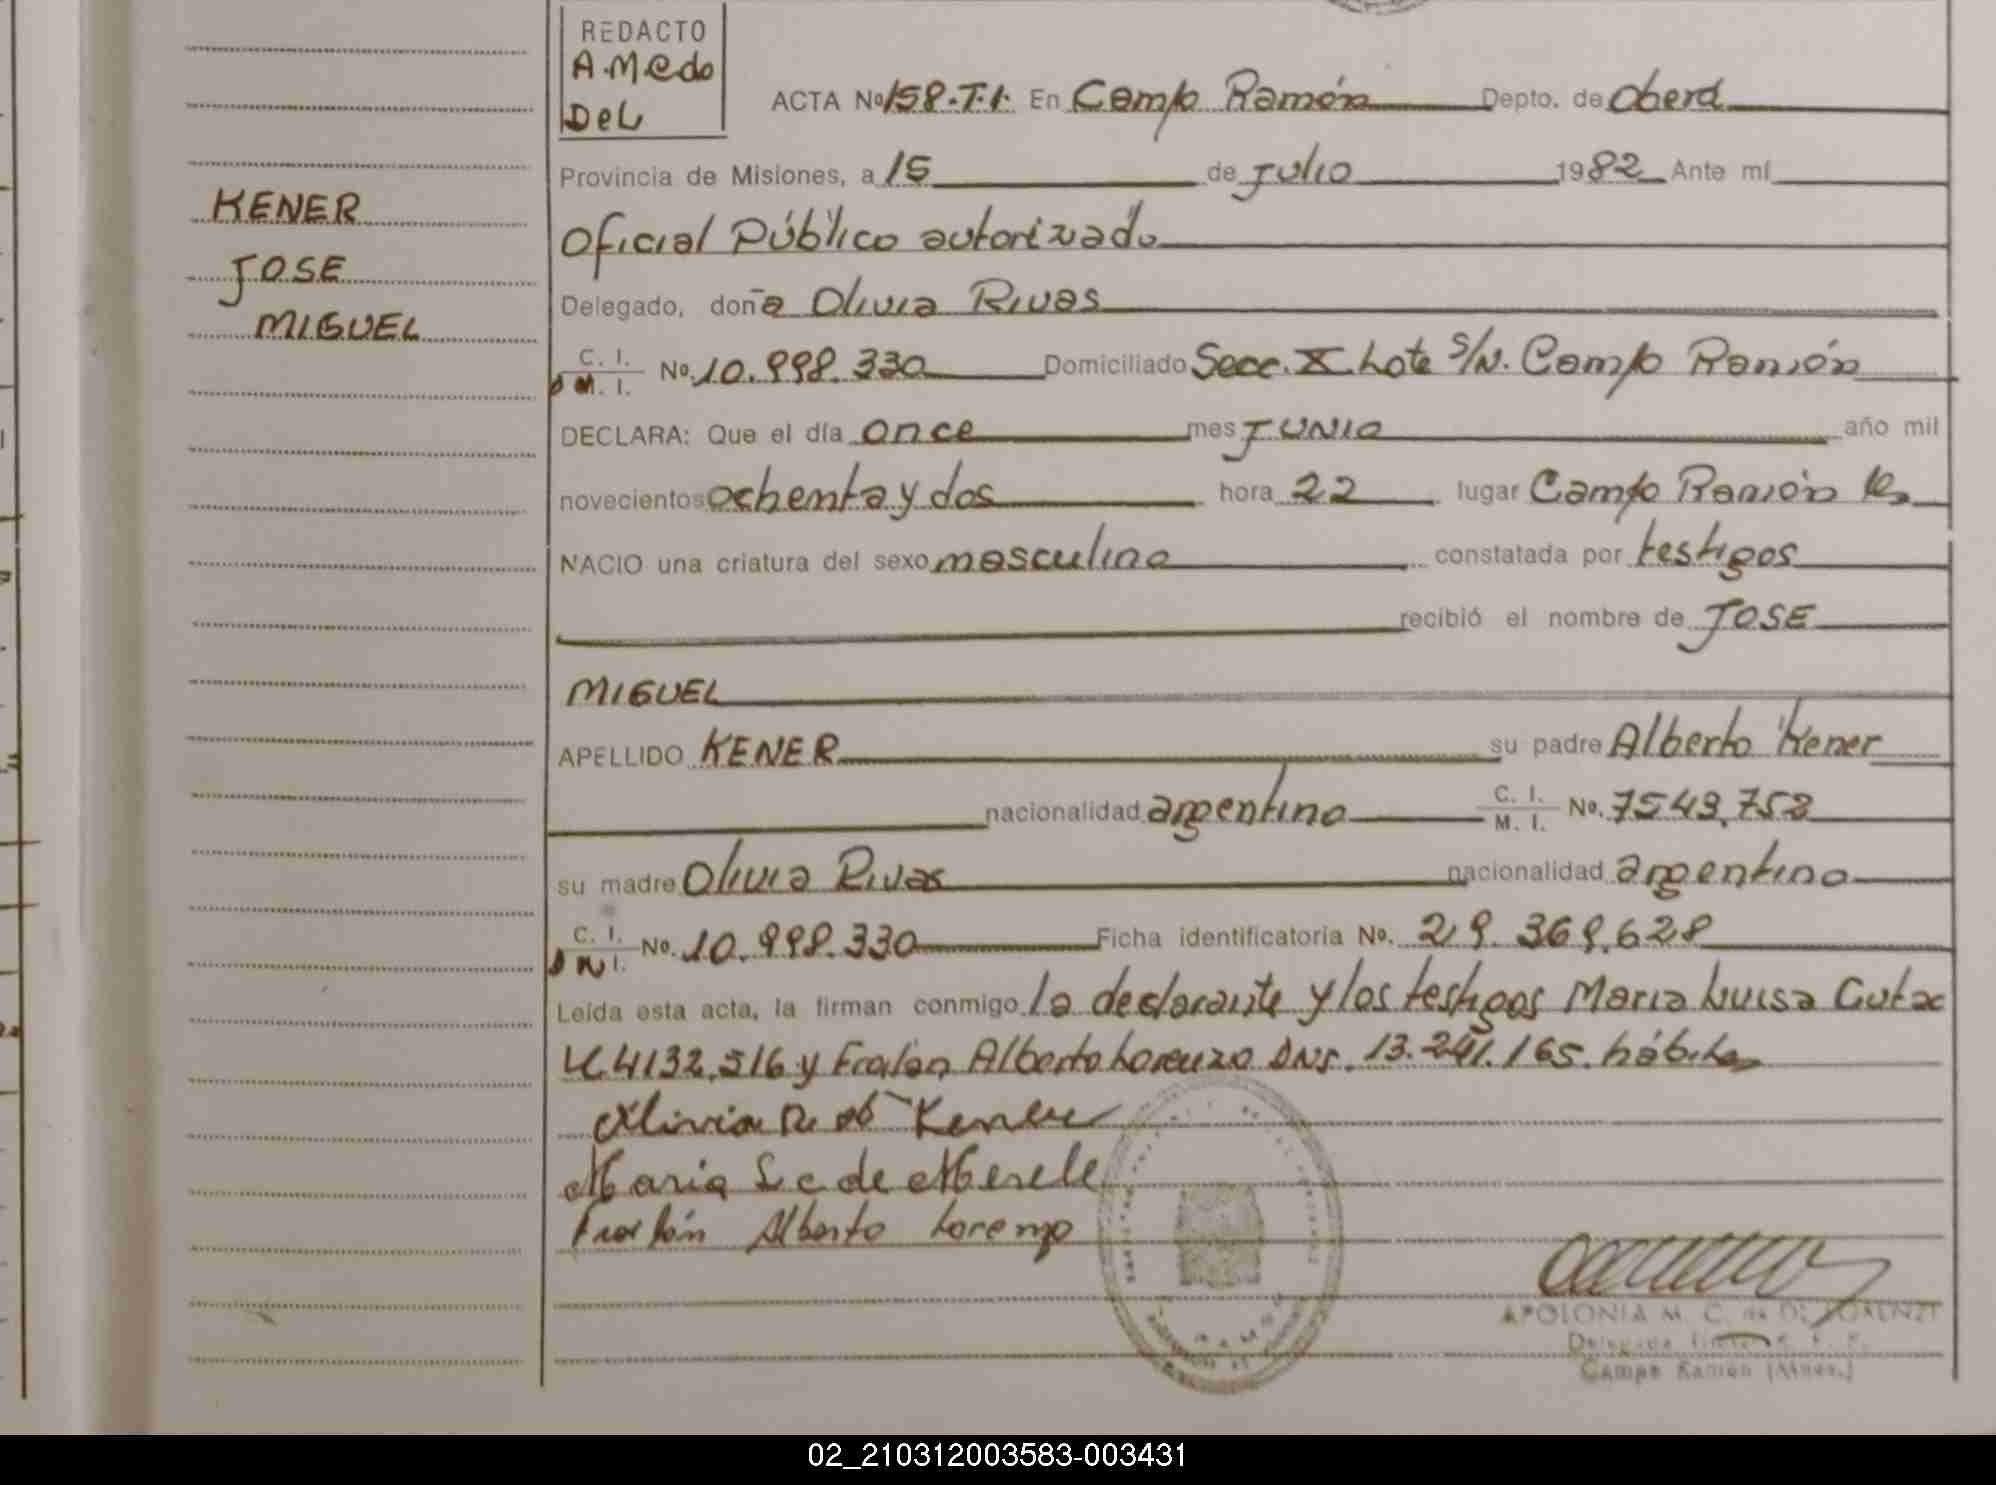 REDACTO
A.Medo
DeL
ACTA Nº 158.T.1. En Campo Ramón Depto. de Oberá
Provincia de Misiones, a 15 de Julio 1982 Ante mí
Oficial Público autorizado
Delegado, doña Olivia Rivas
C. I.
M. I. No. 10.998.330 Domiciliado Secc. X Lote s/N. Campo Ramón
DECLARA: Que el día once mes JUNIO año mil
novecientos ochenta y dos hora 22 lugar Campo Ramón
NACIO una criatura del sexo masculino constatada por testigos
recibió el nombre de JOSE
MIGUEL
APELLIDO KENER su padre Alberto Kener
nacionalidad argentino C. I.
M. I. No. 7549.752
su madre Olivia Rivas nacionalidad argentina
C. I.
D N I. No. 10.998.330 Ficha identificatoria No. 29.369.628
Leída esta acta, la firman conmigo la declarante y los testigos Maria Luisa
LC 4132.516 y Froilan Alberto Lorenzo DNI. 13.241.165. hábiles
Olivia R de Kener
Maria L c de
Froilán Alberto Lorenzo
KENER
JOSE
MIGUEL
APOLONIA M. C. de DI LORENZI
Delegada
Campo Ramón (Mnes.)
02_210312003583-003431